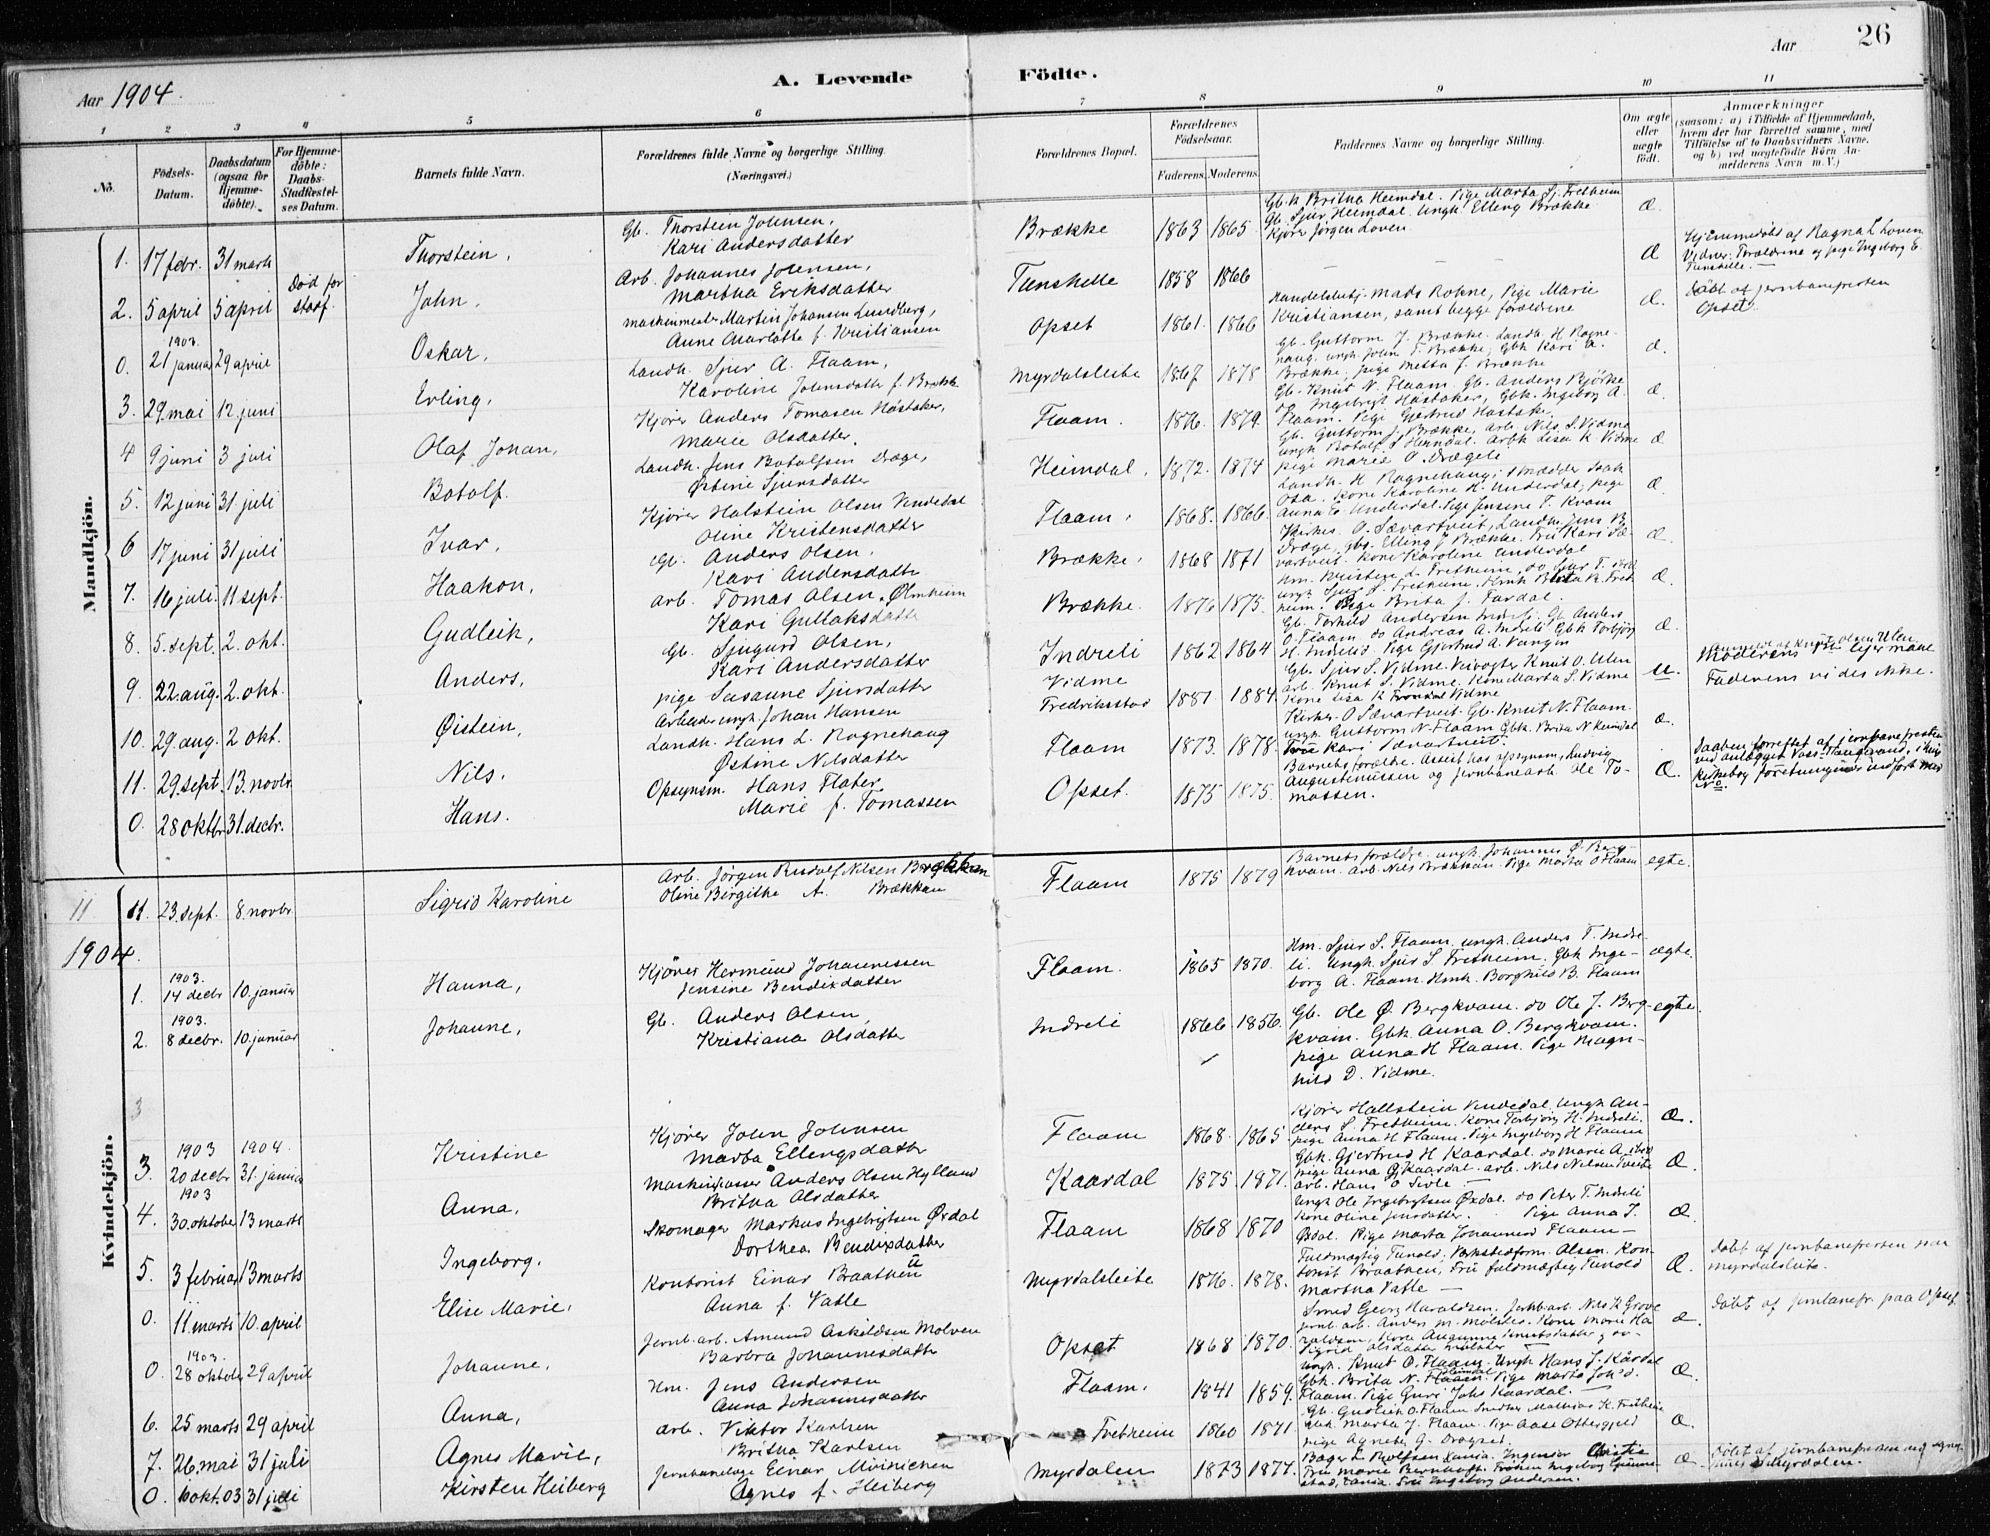 26
Aar 1904
A. Levende Födte.
Aar
1 2 3 4 5 6 7 8 9 10 11
No. Födsels-Datum. Daabsdatum (ogsaa for Hjemmedöbte). For Hjemmedöbte: Daabs-Stadfæstelses Datum. Barnets fulde Navn. Forældrenes fulde Navne og borgerlige Stilling. (Næringsvei.) Forældrenes Bopæl. Forældrenes Födselsaar. Faderens. Moderens. Faddernes Navne og borgerlige Stilling. Om ægte eller uægte födt. Anmærkninger (saasom: a) i Tilfælde af Hjemmedaab, hvem der har forrettet samme, med Tilföielse af to Daabsvidners Navne, og b) ved uægtefödte Börn Anmelderens Navn m. V.)
Mandkjön.
1. 17 febr. 31 marts Thorstein, Gb. Thorstein Johnsen, Kari Andersdatter Brække 1863 1865 Gbk Britha Heimdal. Pige Marta Sj. Fretheim Gb. Sjur Heimdal. Ungk Elling Brække Kjører Jørgen Loven. Æ.
2. 5 april 5 april Død før stadf. John. Arb. Johannes Johnsen, Martha Eriksdatter Tunshelle 1858 1866 — — — Æ Hjemmedøbt af Ragna L Loven Vidner: Forældrene og pige Ingeborg E. Tunshelle. —
0. 1903. 21 januar 29 april Oskar, maskinmester Martin Johansen Lundberg, Anne Charlotte f. Kristiansen Opset 1861. 1866 Handelsbetj. Mads Rokne, Pige Marie Kristiansen, samt begge forældrene Æ. Døbt af jernbanepresten Opset.
3. 29. mai 12 juni Erling, Landh. Sjur A. Flaam, Karoline Johnsdatter f. Brække Myrdalsleite 1867 1878 Gb. Guttorm J. Brække. Landh. H Ragnehaug. ungk John T. Brække, Gbk Kari A. Brække, pige Metta J. Brække Æ.
4 9 juni 3 juli Olaf Johan, Kjører Anders Tomasen Høstaker, Marie Olsdatter. Flaam. 1876. 1879. Gb. Knut N. Flaam. Gb. Anders Bjørke Ingebrigt Høstaker, Gbk. Ingeborg A. Flaam. Pige Gjertrud Høstaker. Æ.
5. 12 juni 31 juli Botolf. Landh. Jens Botolfsen Drege, Østine Sjursdatter Heimdal. 1872. 1874 Gb. Guttorm J. Brække, arb. Nils S. Vidme ungk Botolf S Heimdal. arbk Lisa K Vidme pige Marie O. Drægeli Æ
6 17 juni 31 juli Ivar. Kjører Halstein Olsen Vendedal Oline Kristensdatter Flaam. 1868. 1866. Landh. H Ragnehaug, Kone Karoline H. Underdal, pige Anna E. Underdal. Pige Jensine T. Kvam Æ.
7. 16 juli 11 sept. Haakon, Gb. Anders Olsen, Kari Andersdatter Brække. 1868 1871 Kirkes. O. Sævartveit, Landh. Jens B. Drege, gbs. Elling J Brække. Fru Kari Sævartveit. Kone Karoline Underdal Æ.
8. 5. sept. 2. okt. Gudleik, arb. Tomas Olsen Ølmheim Kari Gullaksdatter Brække. 1876 1875. Hm. Kristen L. Fretheim, ungk Sjur S. Fretheim. Hmk Brita K. Fretheim. Pige Brita J. Fardal. Æ.
9. 22. aug. 2. okt. Anders, Gb. Sjugurd Olsen, Kari Andersdatter Indreli 1862 1864 Gb. Torkild Andersen Indreli. Gb Anders O. Flaam. do Andreas A. Indreli Gbk Torbjør H. Indreli. Pige Gjertrud A. Vangen Æ.
10. 29. aug. 2 okt. Øistein, pige Susanne Sjursdatter Arbeider ungk Johan Hansen Vidme Fredriksstad 1881 1884 Gb. Sjur S. Vidme. Veivogter Knut O. Ulen arb. Knut S. Vidme. Kone Marta S. Vidme Kone Lisa K Vidme U. Moderens Faderens vides ikke.
11. 29. sept. 13. novbr. Nils. Landh. Hans L. Ragnehaug Østine Nilsdatter Flaam 1873. 1878. Kirkes. O Sævartveit. Gb. Knut N. Flaam ungk. Guttorm N. Flaam Gbk. Brita N Heimdal Fru Kari Sævartveit. Æ.
0. 28 oktbr. 31. decbr. Hans. Opsynsm. Hans Flater Marie f. Tomassen Opset. 1875 1875. Barnets forældre. Assist hos opsynsm. Ludvig Augustinussen og jernbanearb. Ole Tomassen. Æ. Daaben forrettet af jernbanepresten ved anlægget Voss-Taugevand, i hvis kirkebog indført med No.
11 11. 23. sept. 8. novbr. Sigrid Karoline Arb. Jørgen Rudolf Nilsen Brækken Oline Bergithe A. Brækkan Flaam 1875 1879 Barnets forældre. ungk. Johannes Ø. Bergkvam. arb. Nils Brækkan. Pige Marta O Flaam egte.
1904.
Kvindekjön.
1. 1903. 14 decbr 10. januar Hanna, Kjører Hermund Johannessen Jensine Bendixdatter Flaam. 1865 1870. Hm. Sjur S. Flaam. ungk. Anders T. Indreli. ungk. Sjur S Fretheim. Gbk Ingeborg A. Flaam. Hmk. Borghild B. Flaam ægte.
2. 1903. 8 decbr. 10. januar Johanne, Gb. Anders Olsen, Kristiana Olsdatter Indreli 1866 1856. Gb. Ole Ø. Bergkvam. do Ole J. Bergkvam. Gbk Anna O. Bergkvam. pige Anna H Flaam. Pige Magnhild D. Vidme. egte.
3
3. 1903 20 decbr 1904. 31. januar Kristine Kjører John Johnsen Marta Ellengsdatter Flaam 1868. 1865 Kjører Hallstein Vendedal, Ungk. Anders S. Fretheim. Kone Torbjørg H. Indreli. pige Anna H Flaam. Pige Ingeborg H Flaam Æ.
4. 1903 30. oktober 13 marts Anna, Maskinpasser Anders Olsen Hylland Britha Olsdatter Kaardal 1875. 1871. Gbk. Gjertrud H Kaardal. do Marie A. pige Anna G Kaardal. arb. Nils Nilsen Tveite arb. Hans O Sivle. — Æ.
5. 3 februar 13 marts Ingeborg. Skomager Markus Ingebrigtsen Øxdal Dorthea Bendixdatter Flaam 1868 1870 Ungk Ole Ingebrigtsen Øxdal. do Peter T. Indreli Kone Oline Jensdatter. Pige Anna J. Øxdal. Pige Marta Johannesd Flaam — Æ.
0. 11 marts 10. april Elise Marie, Kontorist Einar Braathen Anna f. Vatle Myrdalsleite 1876. 1878. Fuldmægtig Tunold, Verkstedform. Olsen. Kontorist Braathen, Fru fuldmægtig Tunold Martha Vatle — Æ. Døbt af jernbanepresten paa Myrdalsleite.
0. 1903. 28 oktober 29 april Johanne, Jernb. arb. Amund Askildsen Molven Barbra Johannesdatter Opset 1868 1870. Smed Georg Haraldsen. jernb. arb. Nils K Grove jernb. arb. Anders M. Mølster. Kone Marie Haraldsen, Kone Knutsdatter, Sigrid Olsdatter Mølster — Æ. Døbt af jernbanepr. paa Opset.
6. 25 marts 29 april Anna, Hm. Jens Andersen Anna Johannesdatter Flaam. 1841 1859. ungk. Knut O. Flaam. Ungk Hans J. Kårdal Gbk. Brita N. Heimdal. Pige Marta Joh's d. Flaam. Pige Guri Johs Kaardal. — Æ.
7. 26. mai 31 juli Agnes Marie, arb. Viktor Karlsen Britha Karlsen Fretheim 1860 1871 Gb. Gudleik O. Flaam Snedker Mathias K. Fretheim Gbk. Marta J. Flaam. Pige Aase Ottergjeld pige Agnete G. Dragsed. Æ.
0. 6 okt. 03 31 juli Kirsten Heiberg Jernbanelæge Einar Moinichen Agnes f. Heiberg Myrdalen 1873 1877. Bager L Rolfsen Xania. Ingeniør Christie Fru Marie Bernhoft. Frøken Ingeborg Xania. Fru Ingeborg Andersen. Æ. Døbt af jernbanepresten Myrdalen.